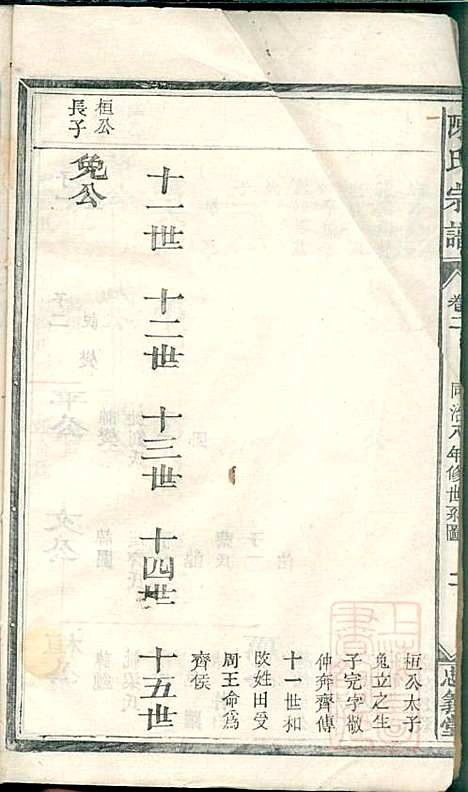 陳氏宗譜
卷二
同治八年修世系圖
二
忠義堂
十一世 十二世 十三世 十四世 十五世
桓公
長子
免公
桓公太子
免立之生
子完字敬
仲奔齊傳
十一世和
改姓田受
周王命爲
齊侯